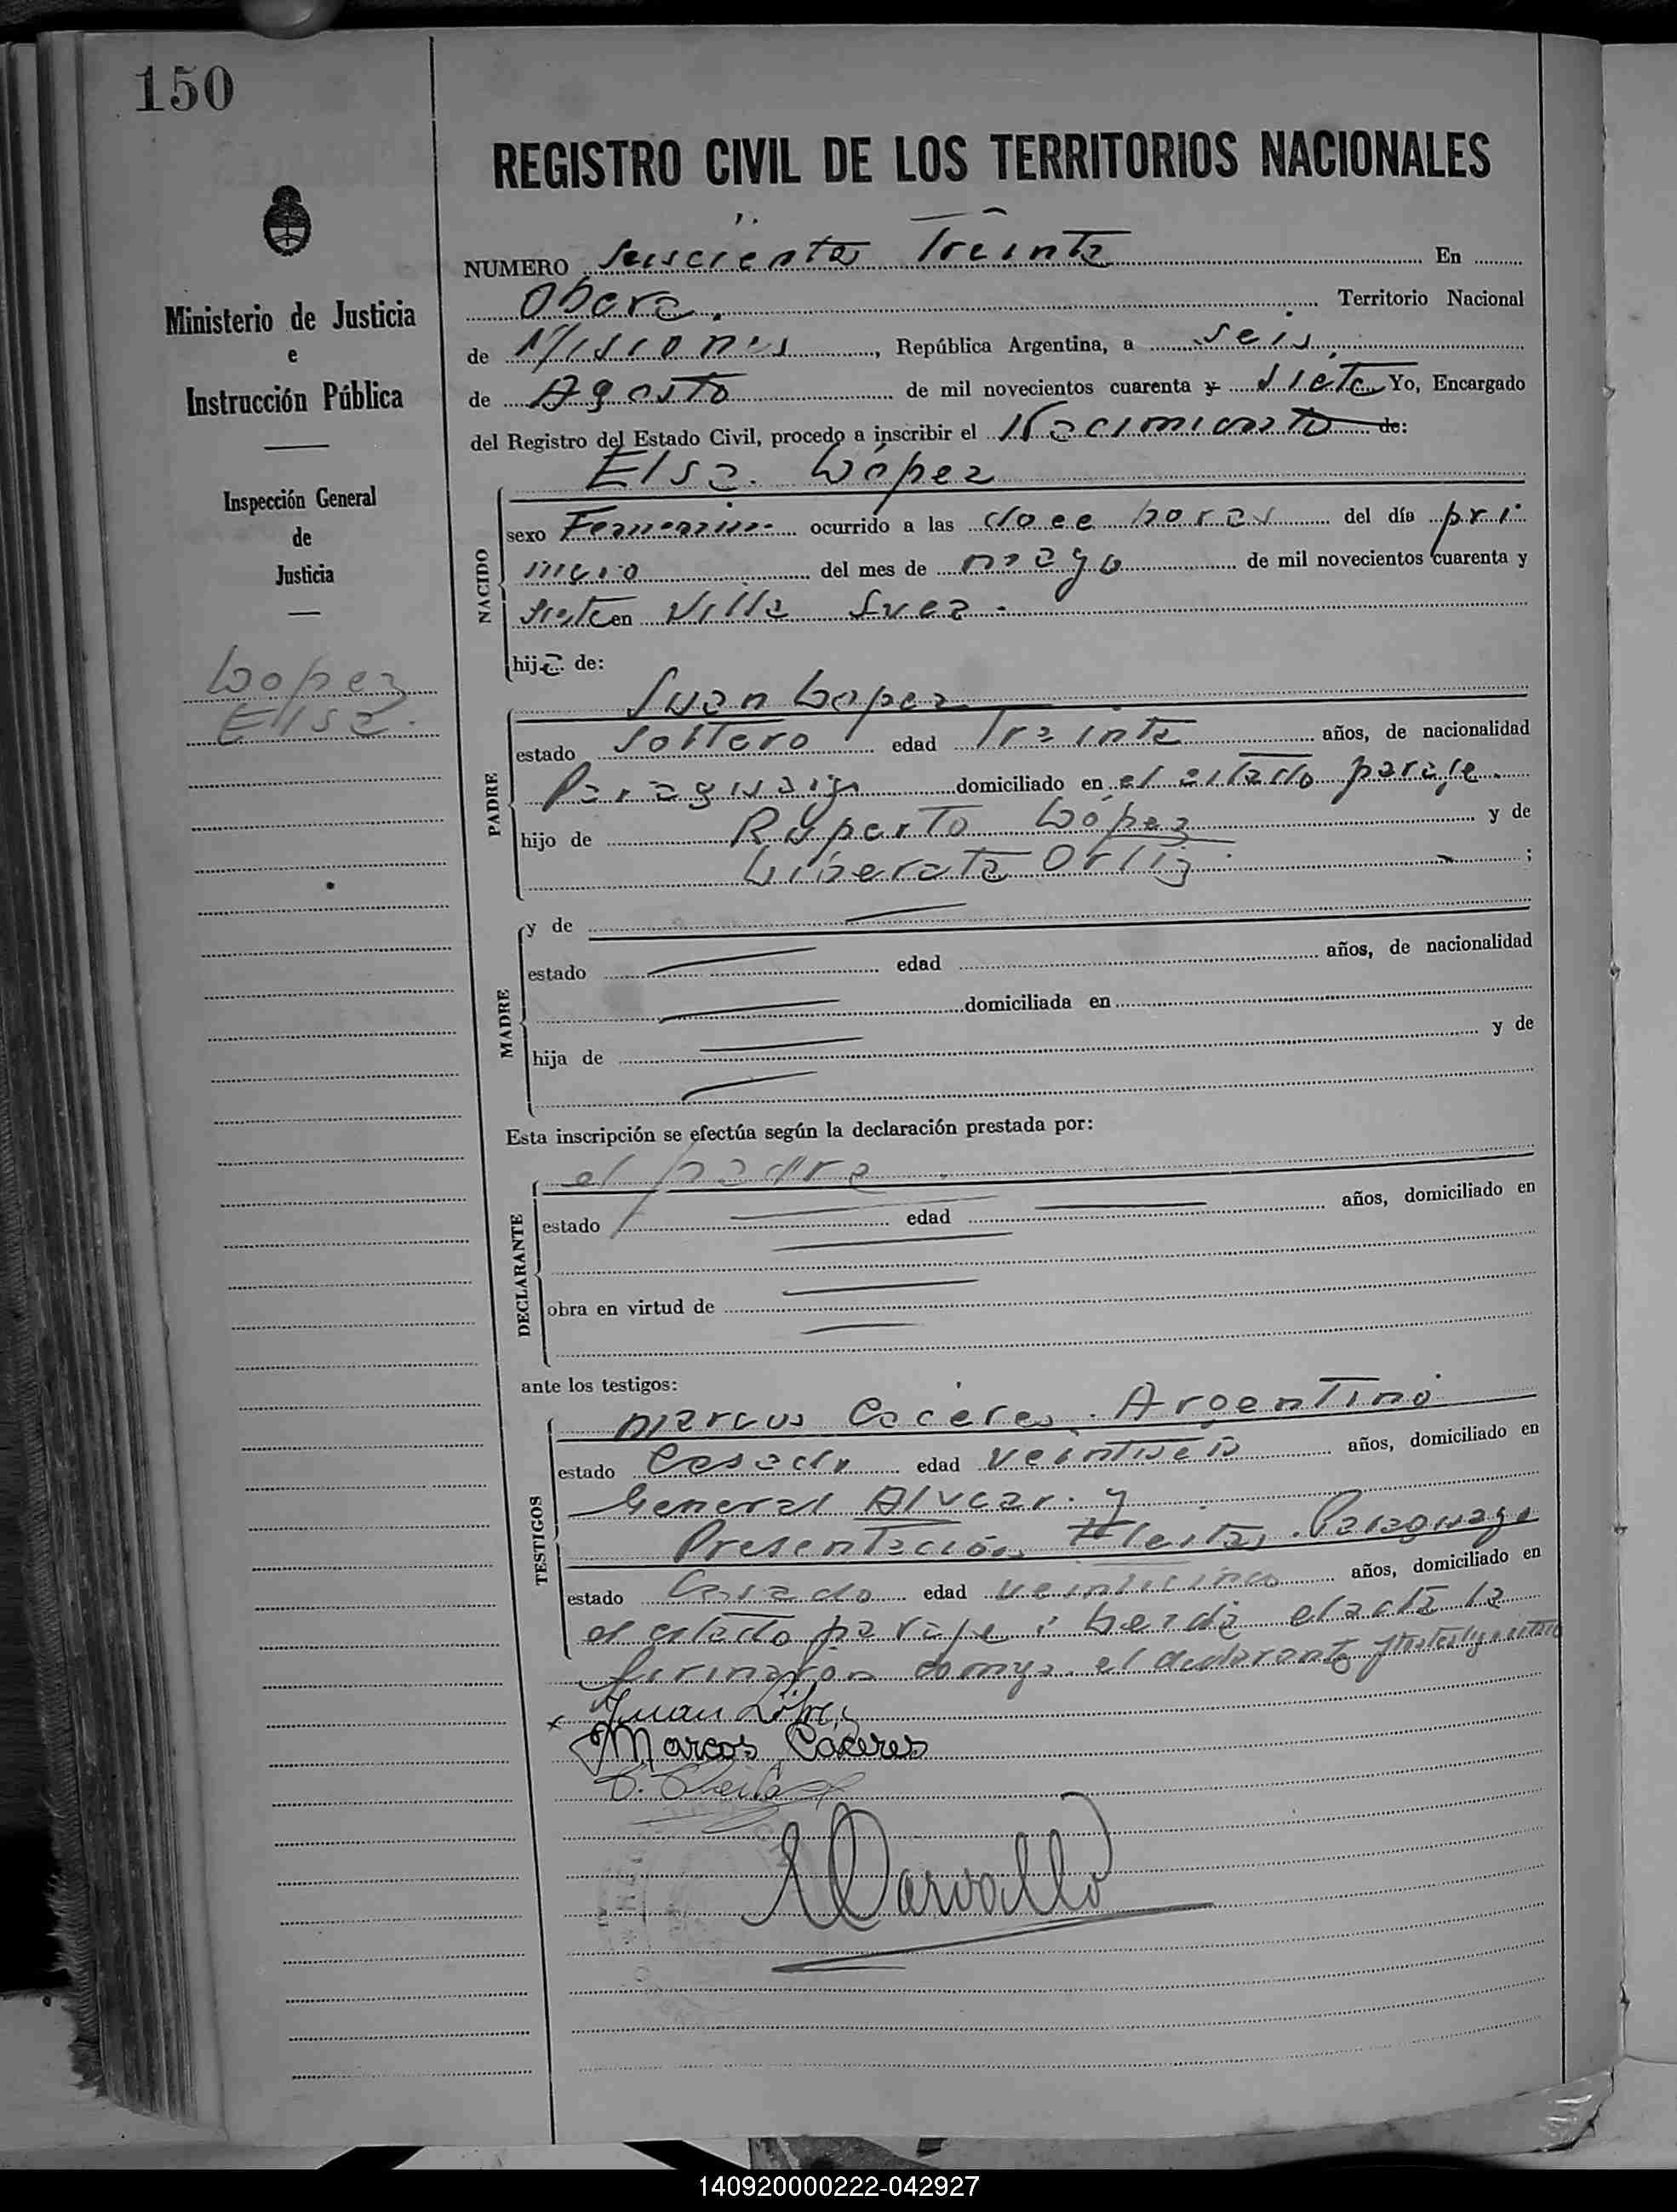 150
REGISTRO CIVIL DE LOS TERRITORIOS NACIONALES
Ministerio de Justicia
e
Instrucción Pública
Inspección General
de
Justicia
Lopez
Elsa.
NUMERO seiscientos Treinta En
Obera. Territorio Nacional
de Misiones, República Argentina, a seis
de Agosto de mil novecientos cuarenta y siete Yo, Encargado
del Registro del Estado Civil, procedo a inscribir el Nacimiento de:
Elsa. López
NACIDO
sexo Femenino ocurrido a las doce horas del día pri
mero del mes de mayo de mil novecientos cuarenta y
siete en Villa Svea.
hija de:
Juan Lopez
PADRE
estado soltero edad Treinta años, de nacionalidad
Paraguaya domiciliado en el citado paraje.
hijo de Ruperto López y de
Liberata Ortiz ;
MADRE
y de
estado edad años, de nacionalidad
domiciliada en
hija de y de
Esta inscripción se efectúa según la declaración prestada por:
el padre
DECLARANTE
estado edad años, domiciliado en
obra en virtud de
ante los testigos:
Marcos Caceres. Argentino
TESTIGOS
estado Casado edad veintiseis años, domiciliado en
General Alvear. y
Presentación Fleitas. Paraguayo
estado Casado edad veinticinco años, domiciliado en
el citado paraje; Leida el acta la
firmaron el declarante
Juan López
Marcos Cáceres
Carvallo
140920000222-042927